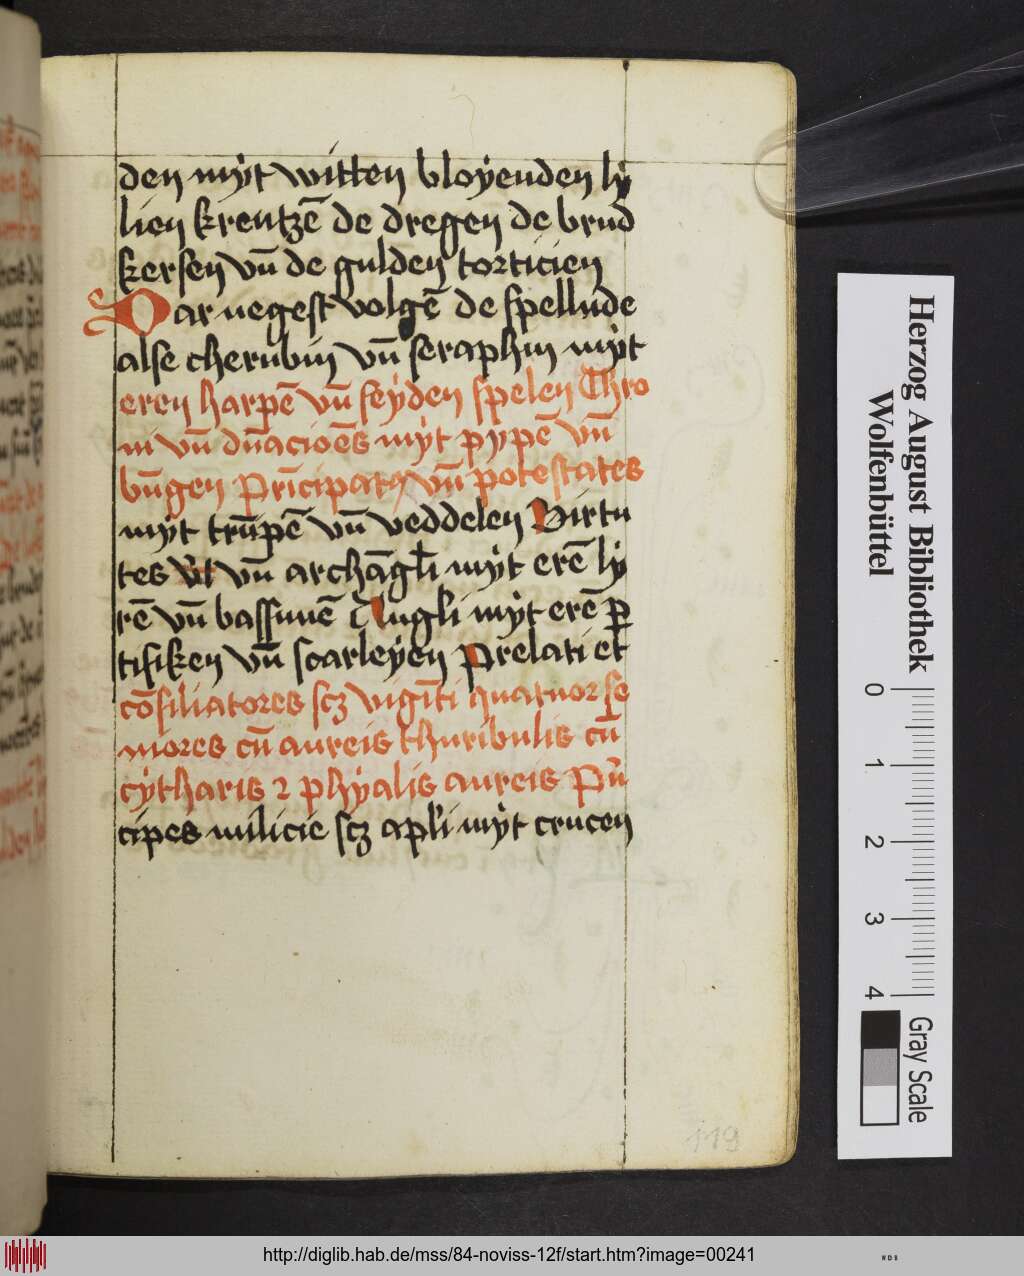 den mẏt witten bloẏenden lẏ
lien krentzē de dregen de brud
kersen vn̄ de gulden torticien
Dar negest volgē de spellude
alse cherubin vn̄ seraphin mẏt
eren harpē vn̄ seẏden spelen Thro
ni vn̄ dn̄acioēs mẏt pypē vn̄
būgen Prīcipatꝯ vn̄ potestates
mẏt trūpē vn̄ veddelen Virtu
tes vn̄ archāgłi mẏt erē lẏ
rē vn̄ bassunē Angłi mẏt erē ꝑ
tifiken vn̄ scarleẏen Prelati et
cōsiliatores scꝫ vigīti quatuor se
niores cū aureis thuribulis cū
cẏtharis ⁊ phẏalis aureis Pⁱn
cipes milicie scꝫ apłi mẏt crucen
119
Herzog August Bibliothek
Wolfenbüttel
0 1 2 3 4
Gray Scale
http://diglib.hab.de/mss/84-noviss-12f/start.htm?image=00241